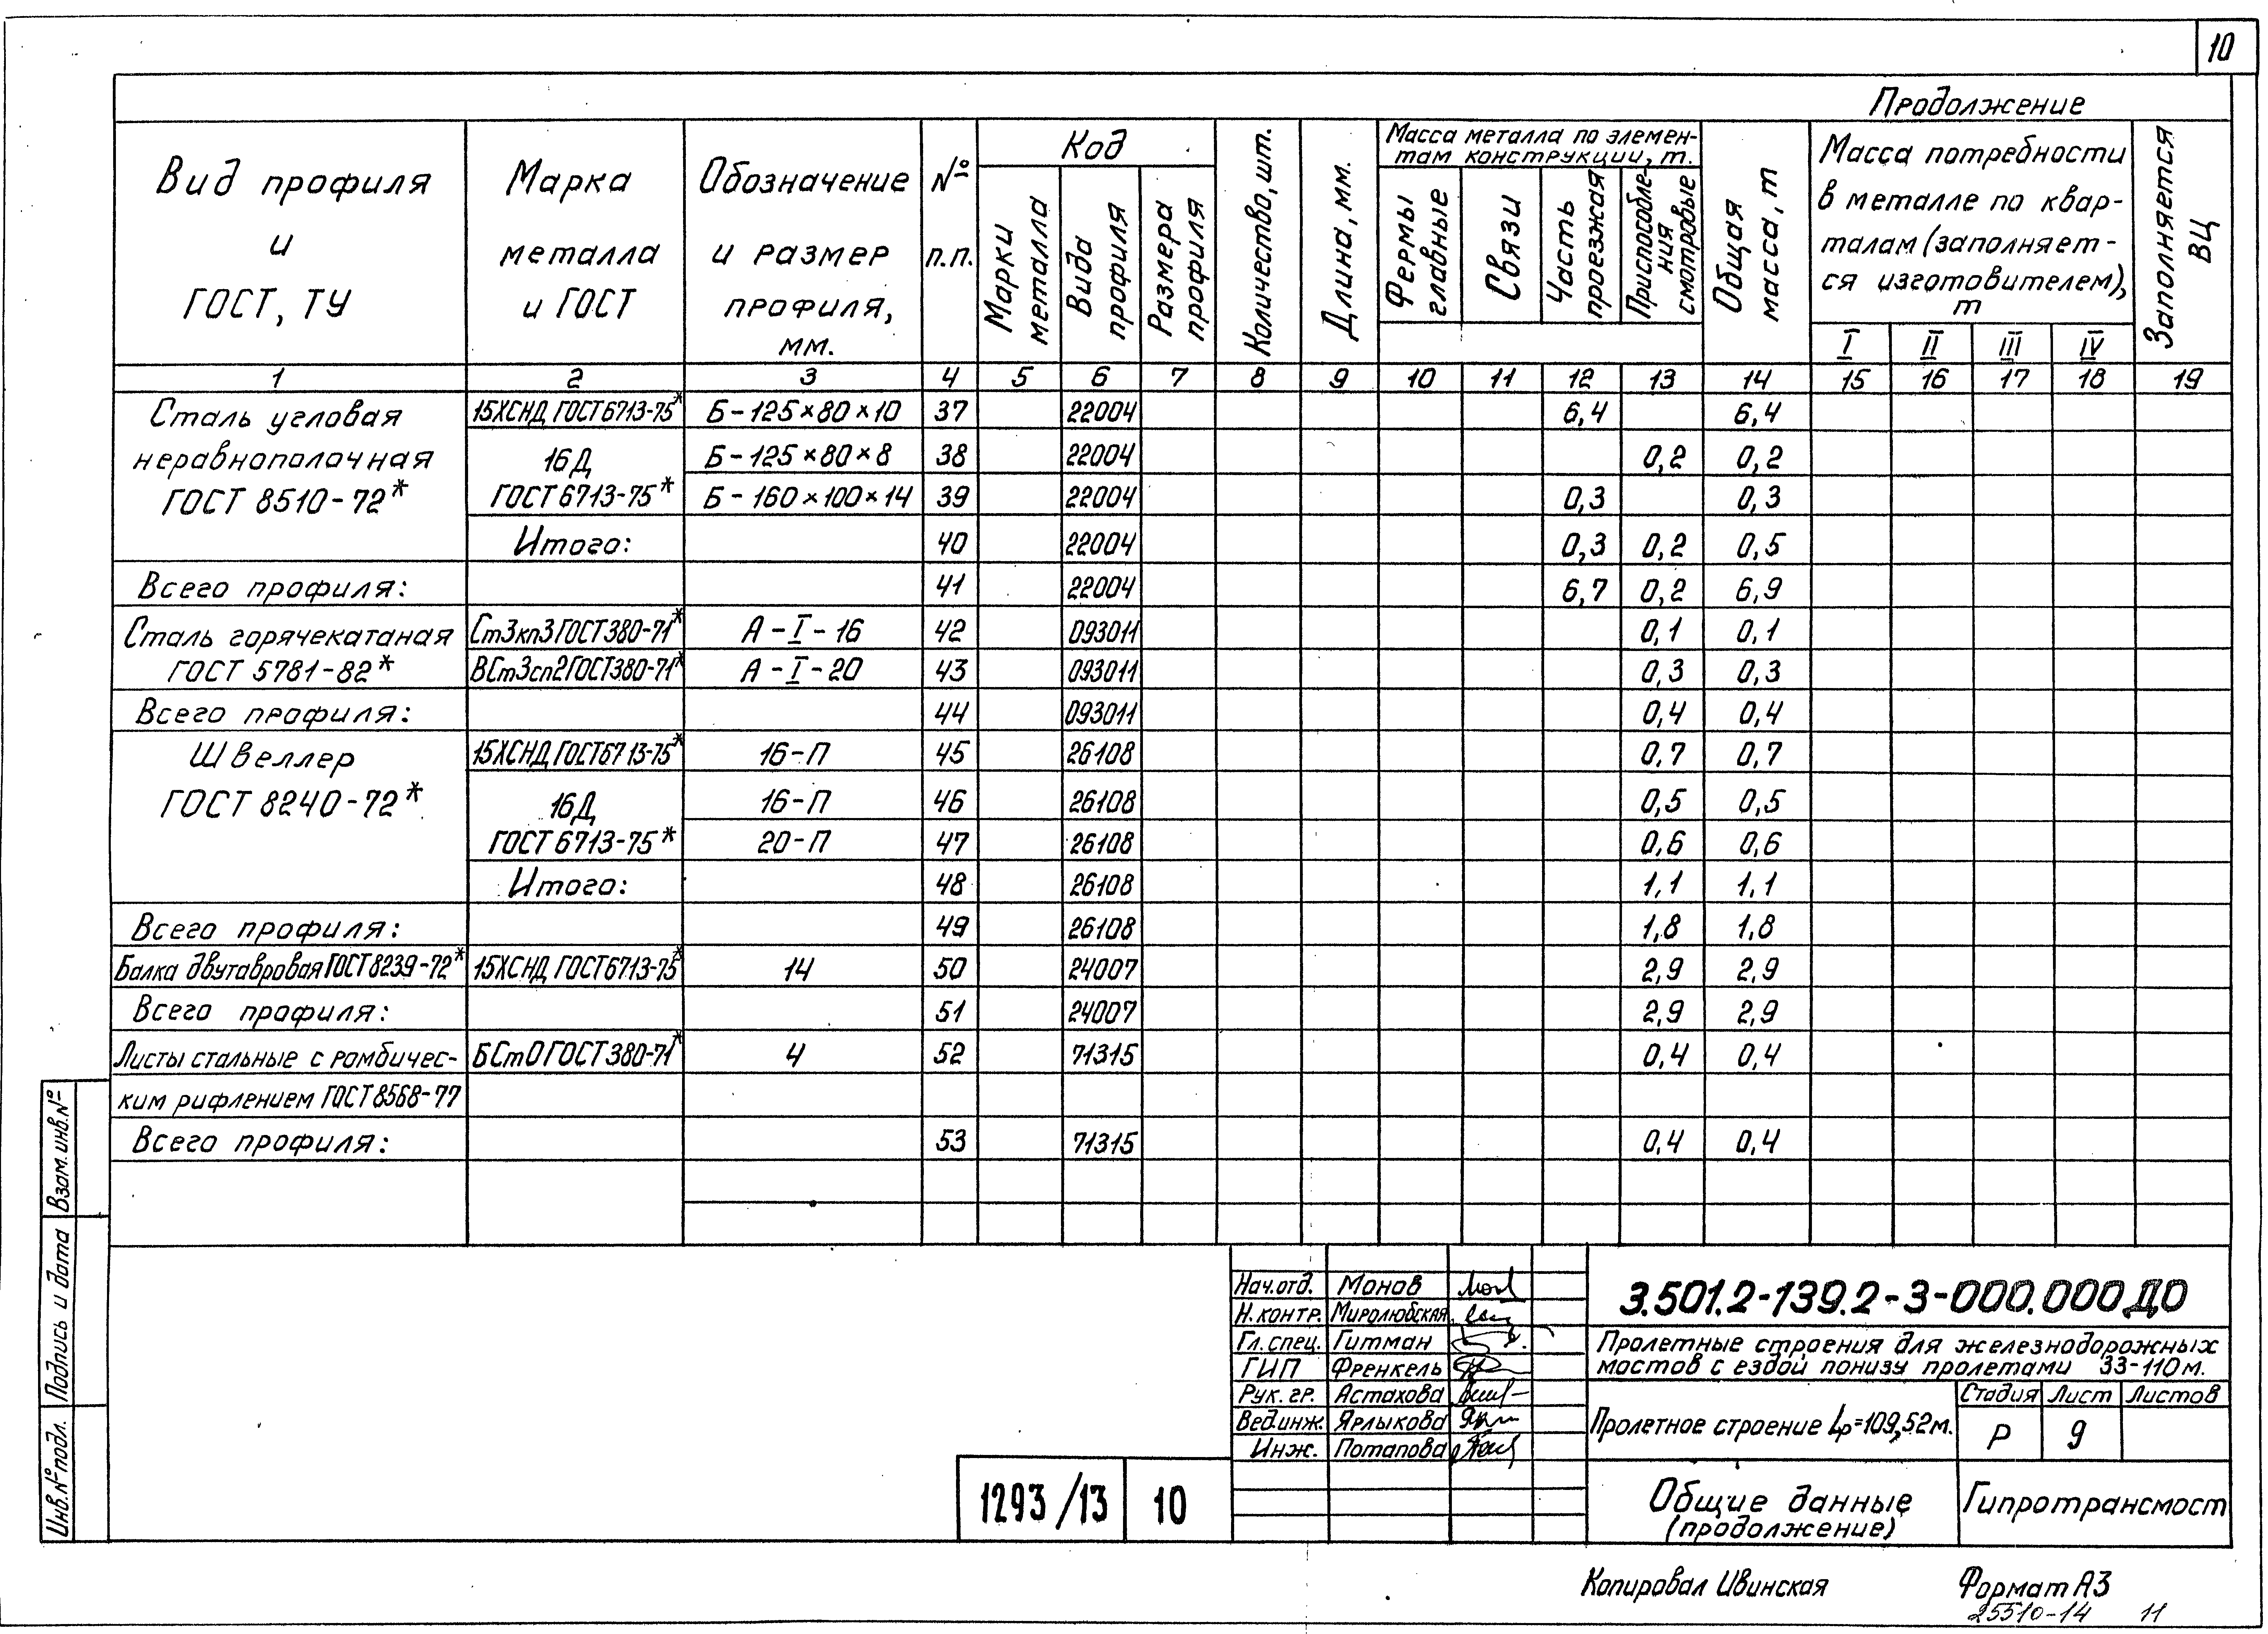 10
Продолжение
Вид профиля и ГОСТ, ТУ
Марка металла и ГОСТ
Обозначение и размер профиля, мм.
№ п.п.
Код
Марки металла
Вида профиля
Размера профиля
Количество, шт.
Длина, мм.
Масса металла по элемен-
там конструкции, т.
Фермы главные
Связи
Часть проезжая
Приспособле-
ния смотровые
Общая масса, т
Масса потребности
в металле по квар-
талам (заполняет-
ся изготовителем),
т
I II III IV
Заполняется ВЦ
1 2 3 4 5 6 7 8 9 10 11 12 13 14 15 16 17 18 19
Сталь угловая 15ХСНД ГОСТ 6713-75* Б-125×80×10 37 22004 6,4 6,4
неравнополочная 16Д Б-125×80×8 38 22004 0,2 0,2
ГОСТ 8510-72* ГОСТ 6713-75* Б-160×100×14 39 22004 0,3 0,3
Итого: 40 22004 0,3 0,2 0,5
Всего профиля: 41 22004 6,7 0,2 6,9
Сталь горячекатаная Ст3кп3 ГОСТ 380-71* А-I-16 42 093011 0,1 0,1
ГОСТ 5781-82* ВСт3сп2 ГОСТ 380-71* А-I-20 43 093011 0,3 0,3
Всего профиля: 44 093011 0,4 0,4
Швеллер 15ХСНД ГОСТ 6713-75* 16-П 45 26108 0,7 0,7
ГОСТ 8240-72* 16Д 16-П 46 26108 0,5 0,5
ГОСТ 6713-75* 20-П 47 26108 0,6 0,6
Итого: 48 26108 1,1 1,1
Всего профиля: 49 26108 1,8 1,8
Балка двутавровая ГОСТ 8239-72* 15ХСНД ГОСТ 6713-75* 14 50 24007 2,9 2,9
Всего профиля: 51 24007 2,9 2,9
Листы стальные с ромбичес- БСт0 ГОСТ 380-71* 4 52 71315 0,4 0,4
ким рифлением ГОСТ 8568-77
Всего профиля: 53 71315 0,4 0,4
Взам. инв. №
Подпись и дата
Инв. № подл.
Нач.отд. Монов
Н.контр. Миролюбская
Гл.спец. Гитман
ГИП Френкель
Рук.гр. Астахова
Вед.инж. Ярлыкова
Инж. Потапова
3.501.2-139.2-3-000.000 ДО
Пролетные строения для железнодорожных
мостов с ездой понизу пролетами 33-110 м.
Пролетное строение Lр=109,52 м.
Стадия Лист Листов
Р 9
Общие данные
(продолжение)
Гипротрансмост
1293/13 10
Копировал Ивинская Формат А3
25510-14 11